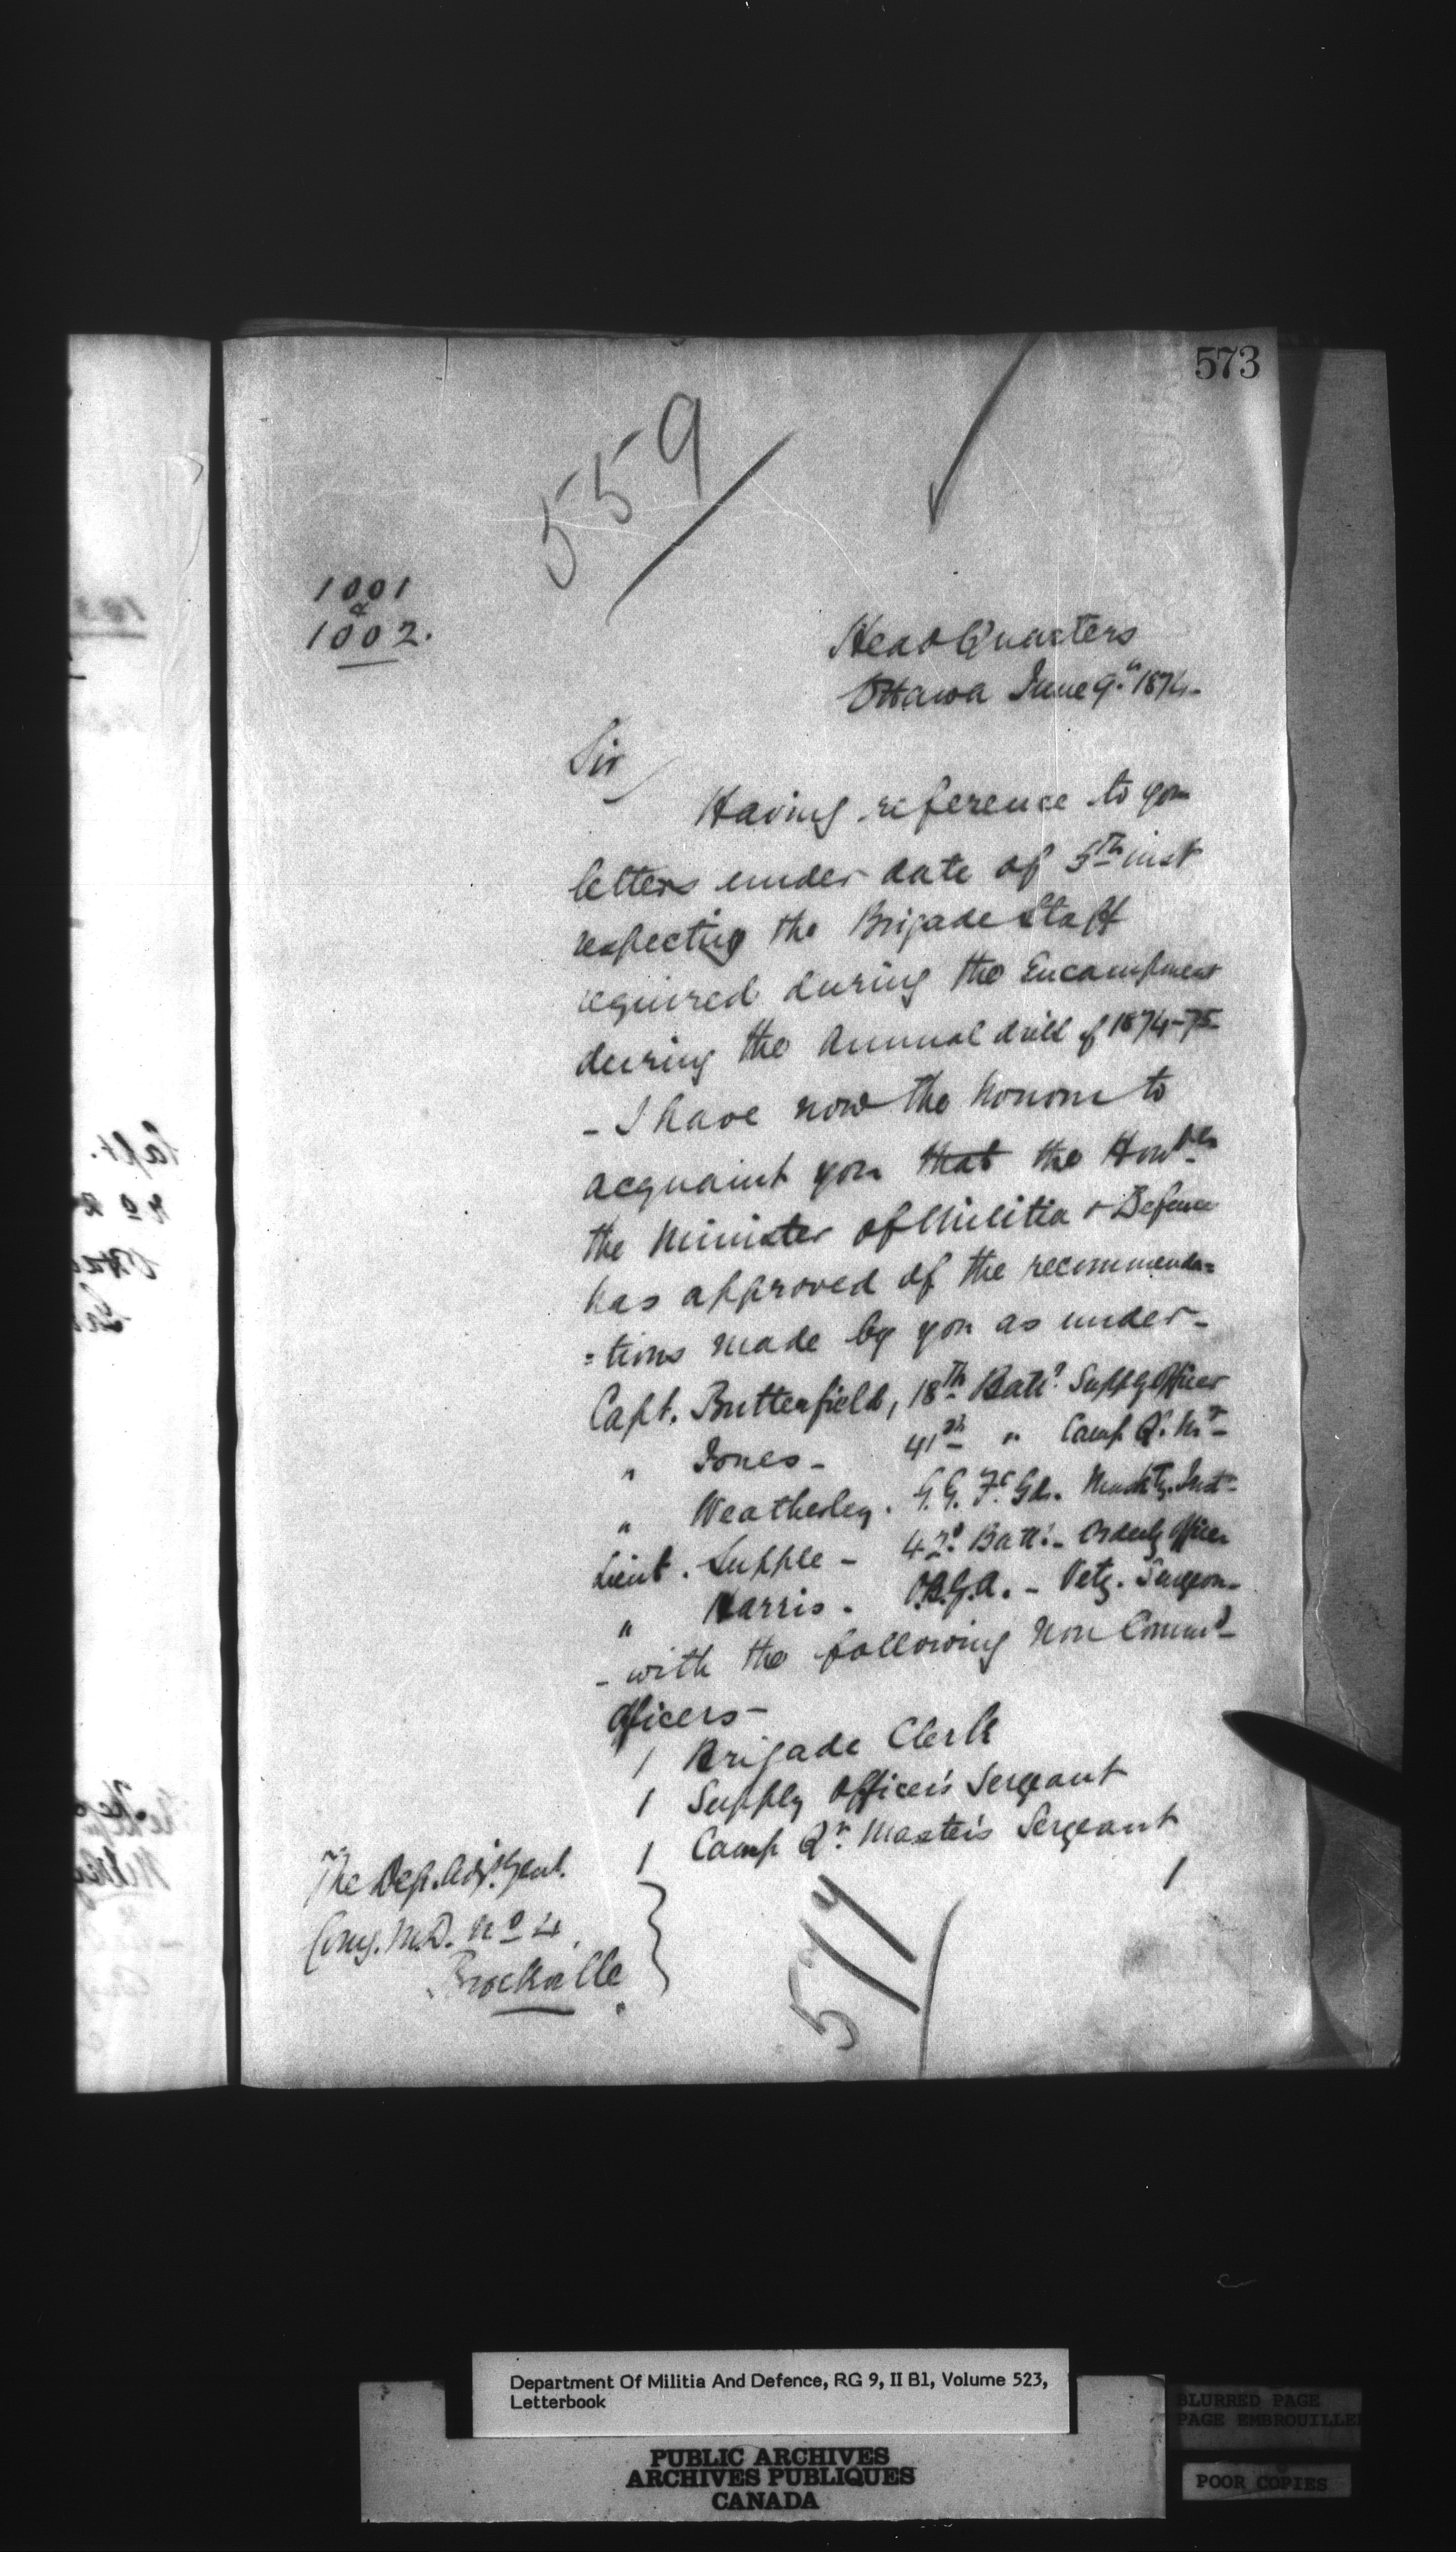 573
559
1001
&
1002.
Head Quarters
Ottawa June 9th 1874.
Sir
Having reference to your
letters under date of 5th inst
respecting the Brigade Staff
required during the Encampment
during the Annual drill of 1874-75
- I have now the honour to
acquaint you that the Honble
the Minister of Militia & Defence
has approved of the recommenda=
=tions made by you as under-
Capt. Butterfield, 18th Battn Supply Officer
" Jones - 41st " Camp Qr. Mr.
" Weatherley. G.G. Ft Gds. Muskty. Inst.
Lieut. Supple - 42d Battn. - Orderly Officer
" Harris - O.B.G.A. - Vety. Surgeon-
- with the following Non Commd
Officers-
1 Brigade Clerk
1 Supply Officer's Sergeant
1 Camp Qr. Master's Sergeant
1
The Dep. Adjt. Genl.
Comg. M.D. No 4.
Brockville
574
Capt.
Department Of Militia And Defence, RG 9, II B1, Volume 523,
Letterbook
PUBLIC ARCHIVES
ARCHIVES PUBLIQUES
CANADA
BLURRED PAGE
PAGE EMBROUILLE
POOR COPIES